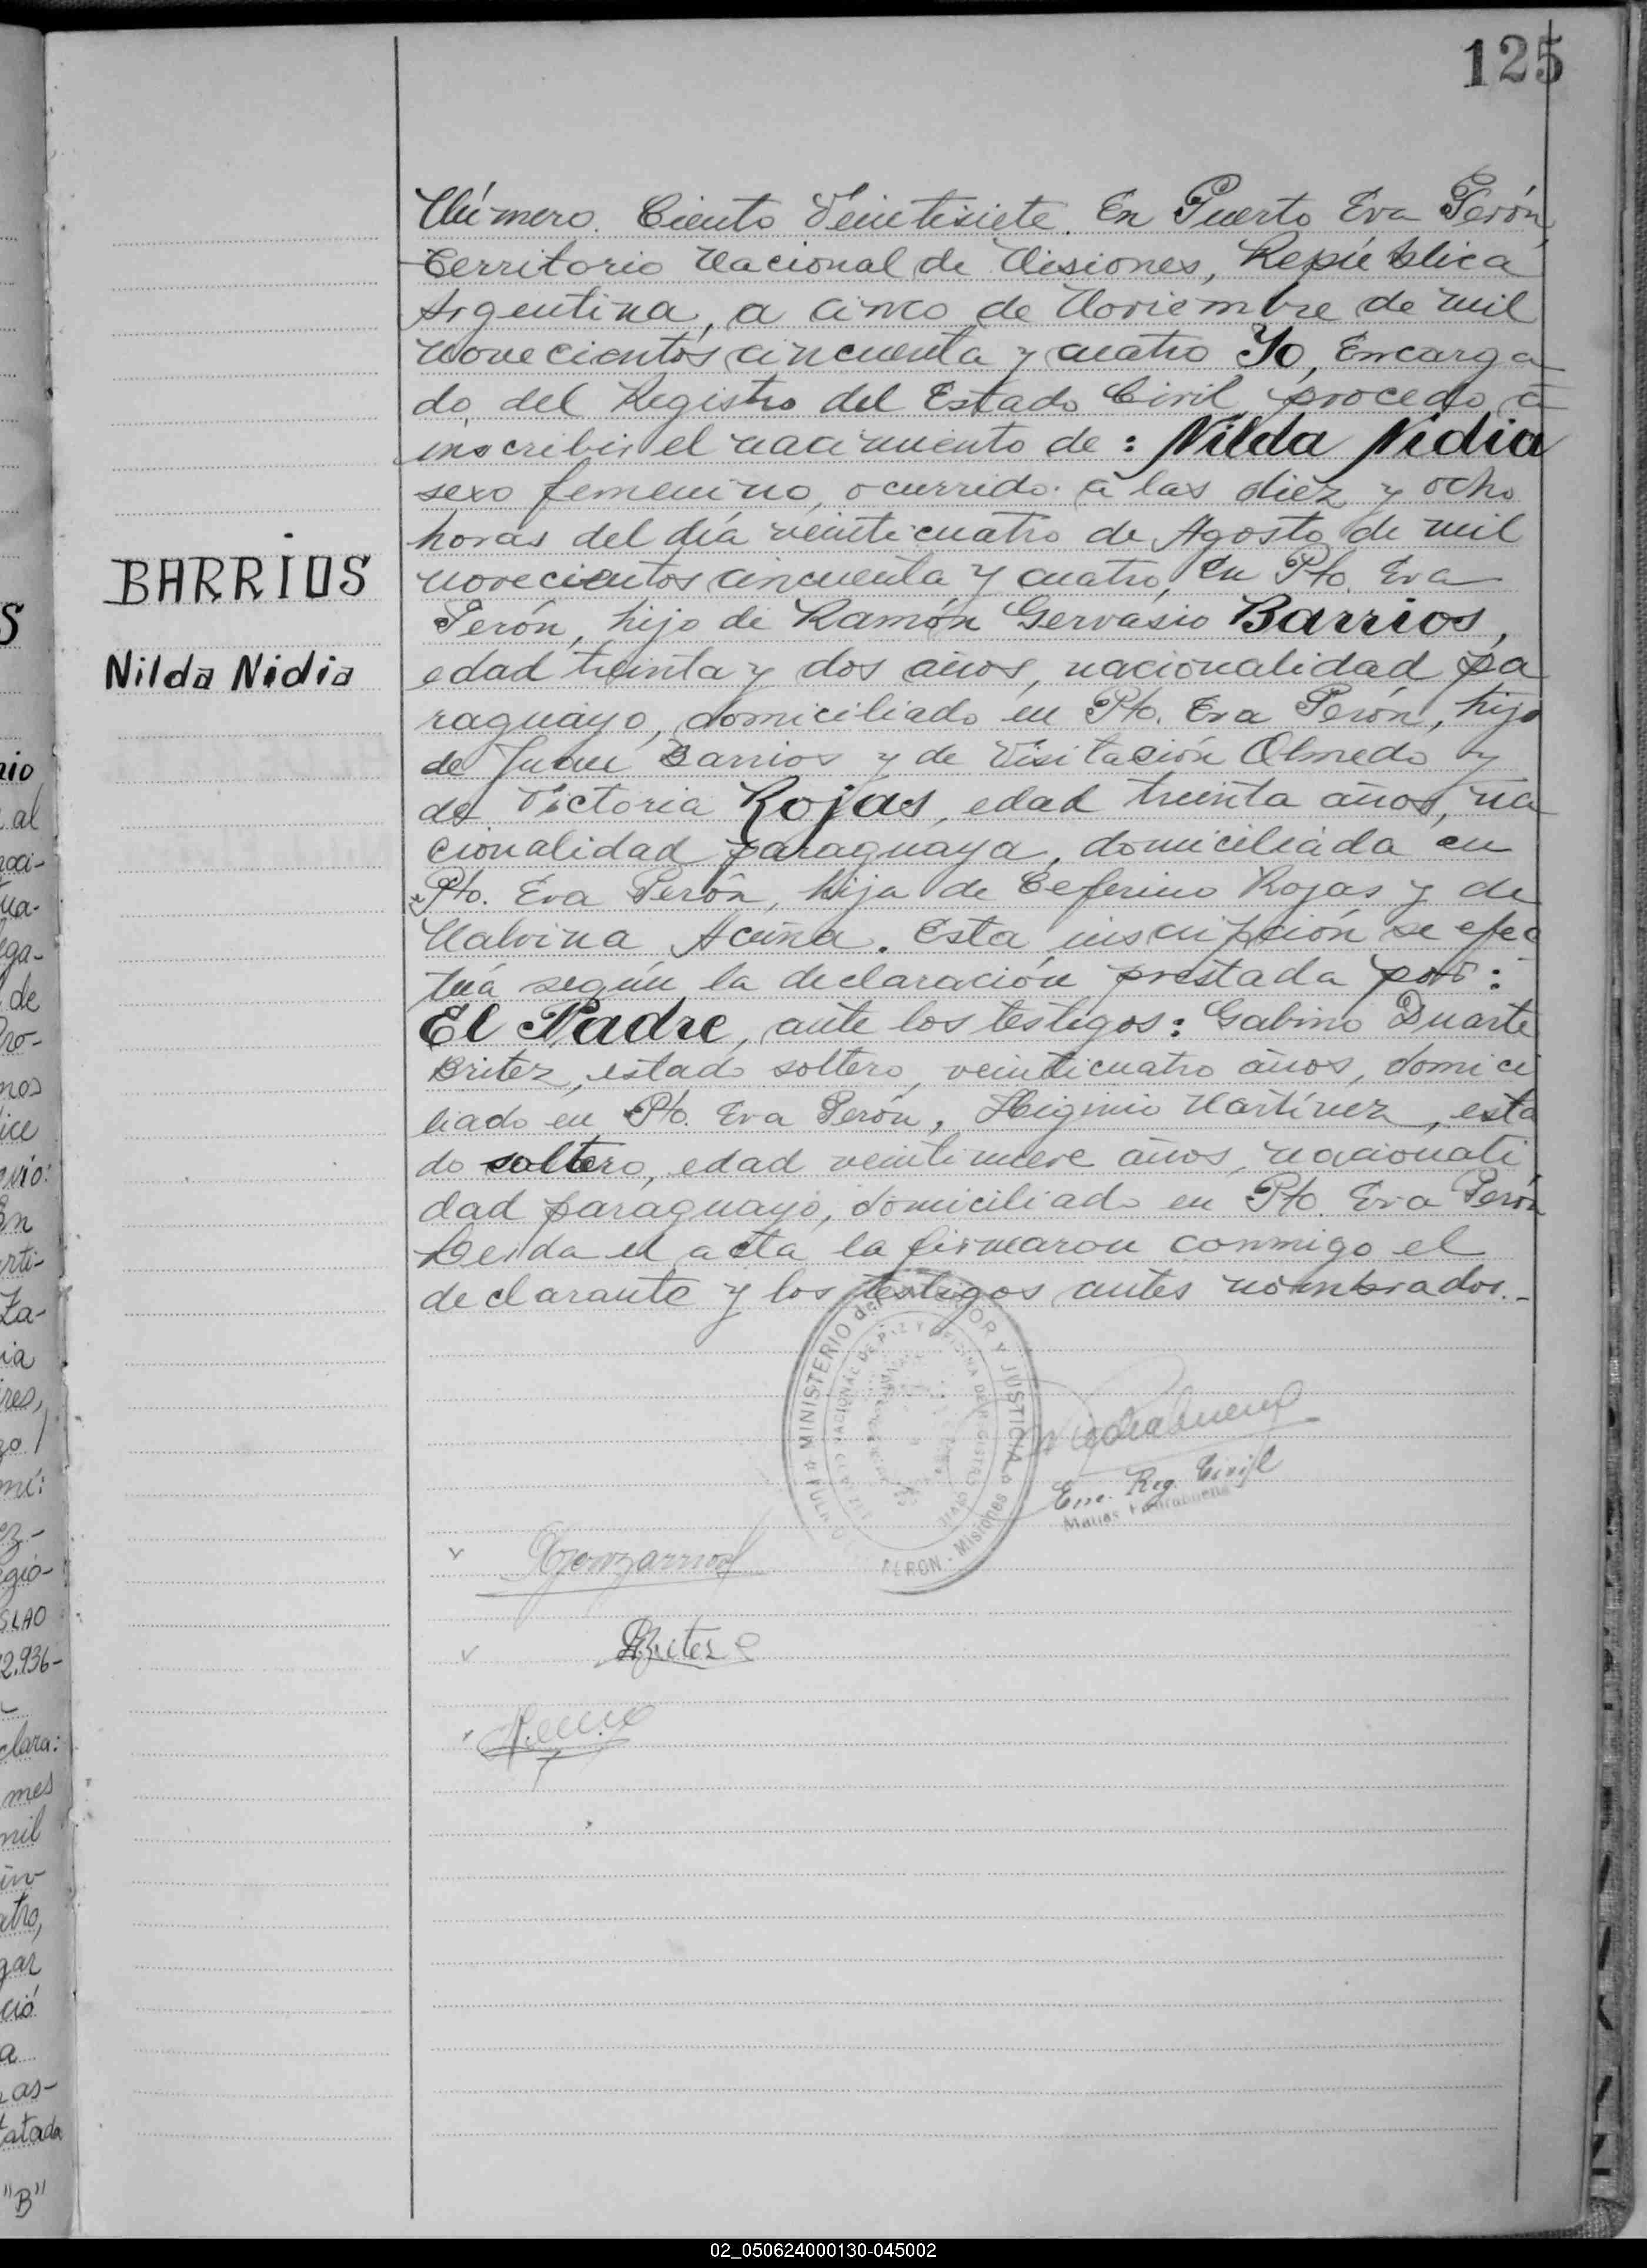 125
Número. Ciento Veintisiete. En Puerto Eva Perón,
Territorio Nacional de Misiones, República
Argentina, a cinco de Noviembre de mil
novecientos cincuenta y cuatro Yo, Encarga
do del Registro del Estado Civil procedo a
inscribir el nacimiento de: Nilda Nidia
sexo femenino, ocurrido a las diez y ocho
horas del día veinticuatro de Agosto de mil
BARRIOS
novecientos cincuenta y cuatro, en Pto. Eva
Perón, hijo de Ramón Gervasio Barrios,
Nilda Nidia
edad treinta y dos años, nacionalidad pa
raguayo, domiciliado en Pto. Eva Perón, hijo
de Barrios y de Visitación Olmedo y
de Victoria Rojas, edad treinta años, na
cionalidad paraguaya, domiciliada en
Pto. Eva Perón, hija de Ceferino Rojas y de
Malvina Acuña. Esta inscripción se efec
túa según la declaración prestada por:
El Padre, ante los testigos: Gabino Duarte
Britez, estado soltero, veinticuatro años, domici
liado en Pto. Eva Perón, Higinio Martínez, esta
do soltero, edad veintinueve años, nacionali
dad paraguayo, domiciliado en Pto. Eva Perón
Leida el acta la firmaron conmigo el
declarante y los testigos antes nombrados.-
MINISTERIO del INTERIOR Y JUSTICIA
PERON - Misiones
Enc. Reg. Civil
Matias Piedrabuena
Britez
02_050624000130-045002